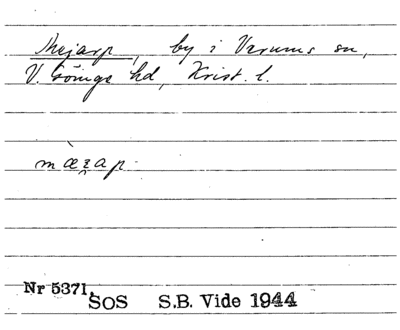 Mejarp, by i Verums sn,
V. Göinge hd, Krist. l.
mæ̀ʐap
Nr 5371. SOS S.B. Vide 1944